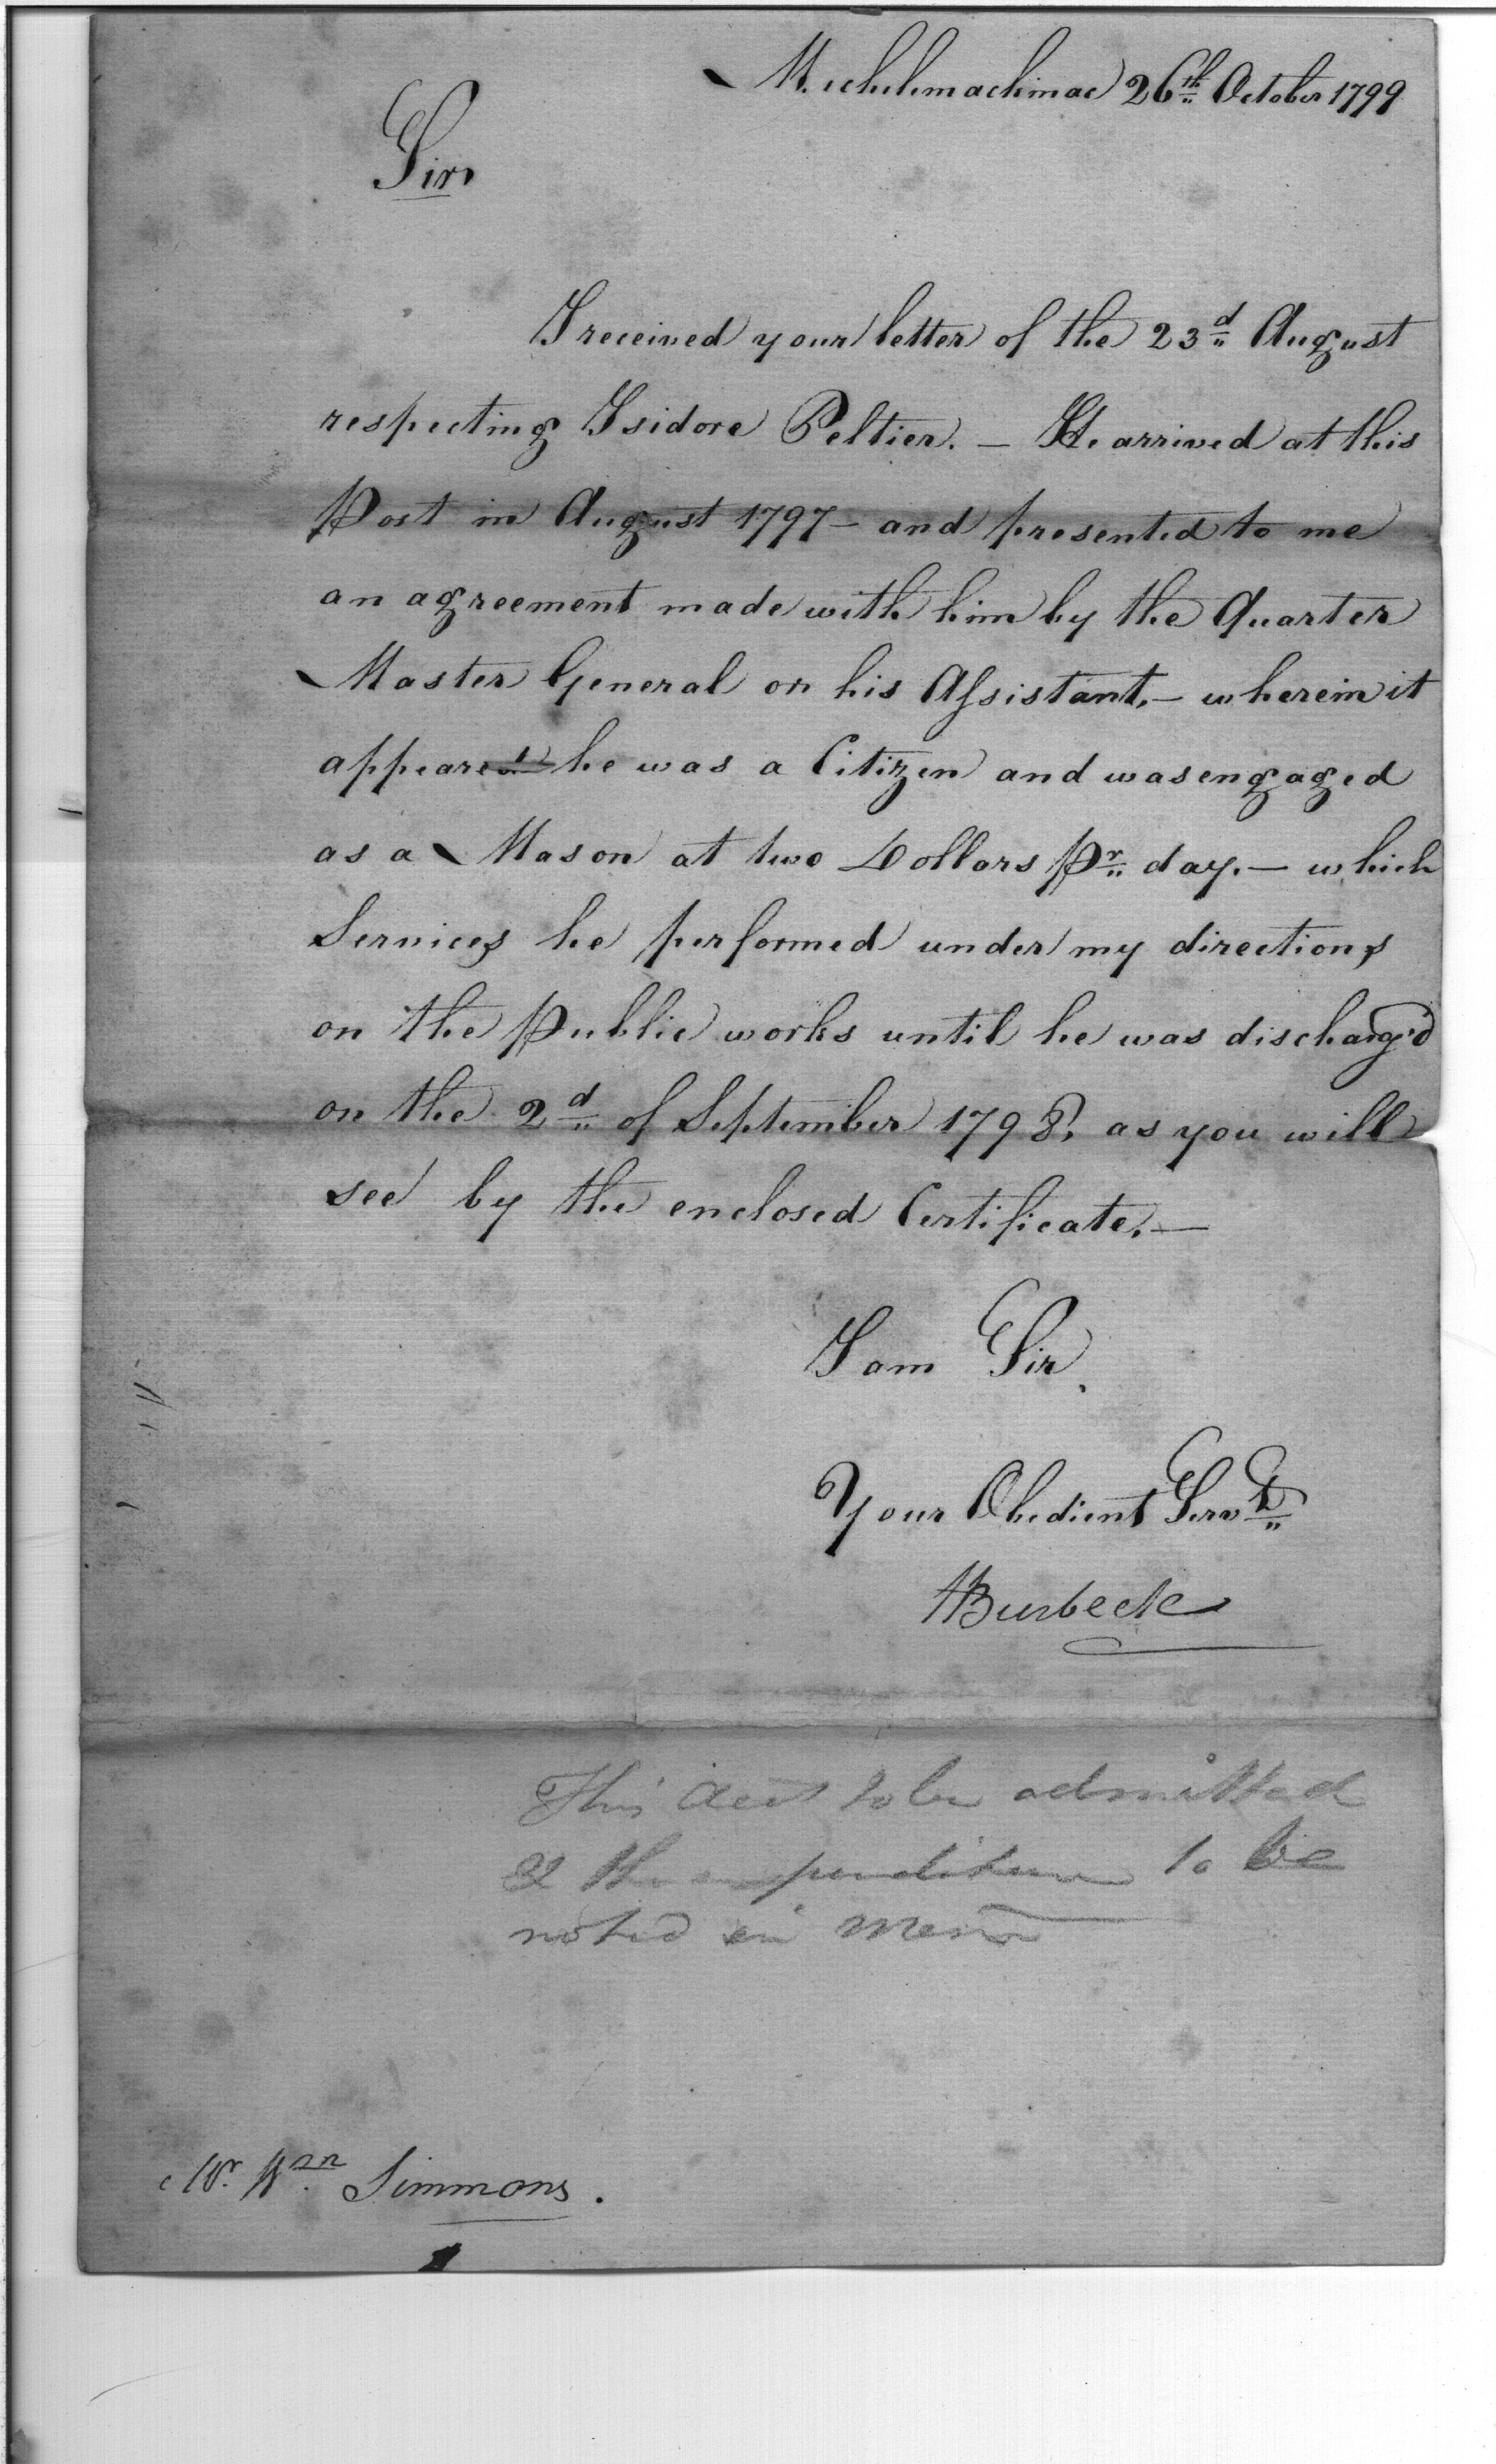 Michilimackinac 26th October 1799
Sir
I received your letter of the 23d August
respecting Isidore Peltier. — He arrived at this
Post in August 1797 — and presented to me
an agreement made with him by the Quarter
Master General or his Assistant, — wherein it
appeared he was a Citizen and was engaged
as a Mason at two Dollars Pr day. — which
Services he performed under my directions
on the Public works until he was discharg'd
on the 2d of September 1798, as you will
see by the enclosed Certificate. —
I am Sir,
Your Obedient Servt
HBurbeck
This Acct to be admitted
& the expenditure to be
noted in
Mr. Wm Simmons.